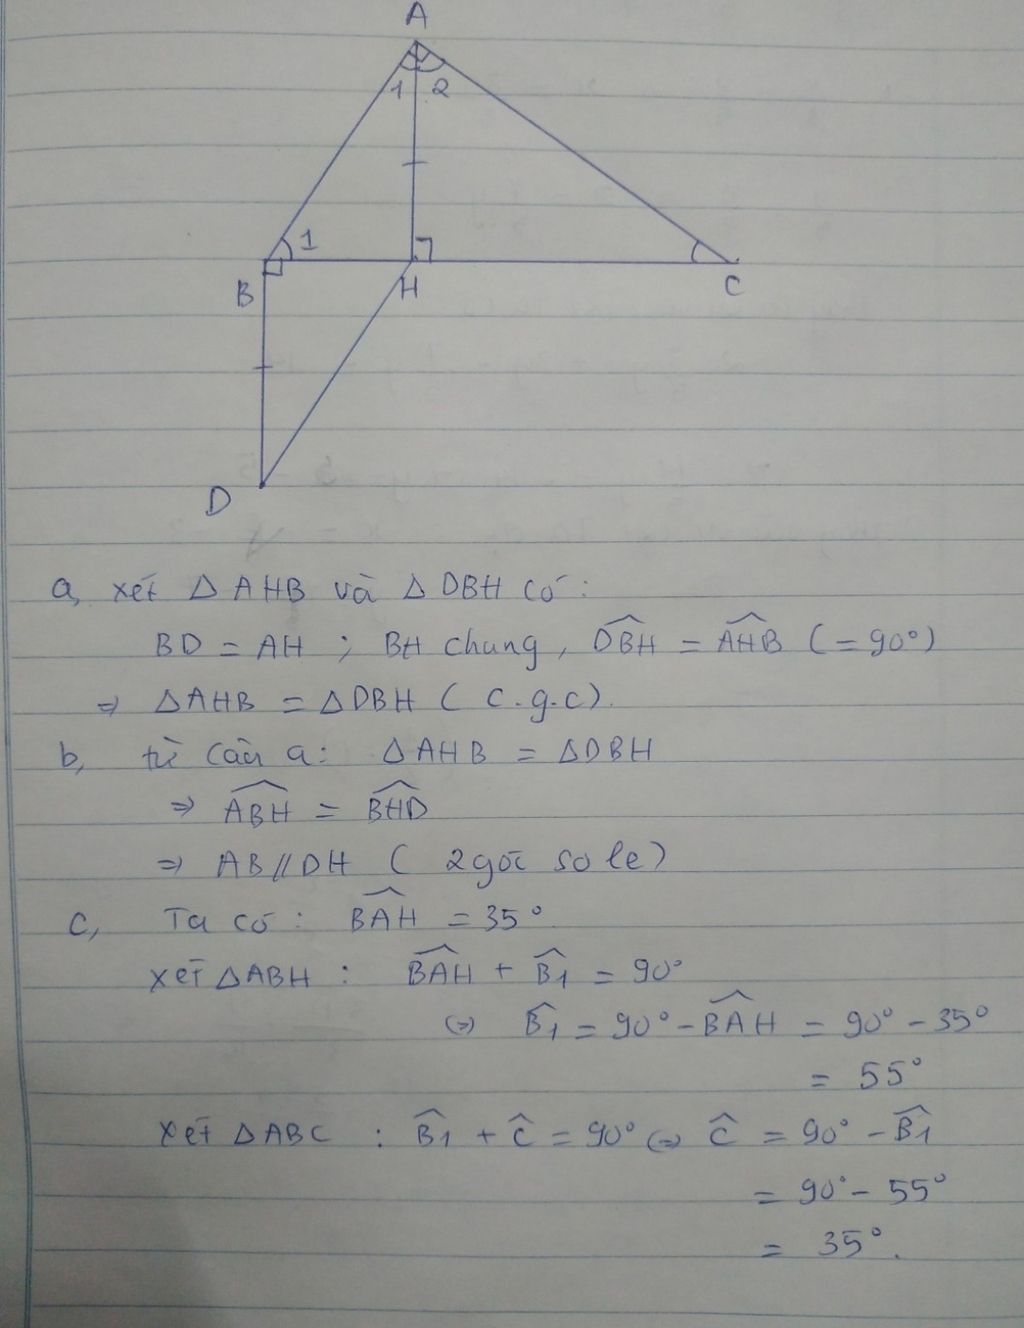 A
1 2
1
B H C
D
a, xét △AHB và △DBH có:
BD = AH ; BH chung, \widehat{DBH} = \widehat{AHB} (= 90°)
⇒ △AHB = △DBH (c.g.c).
b, từ câu a: △AHB = △DBH
⇒ \widehat{ABH} = \widehat{BHD}
⇒ AB // DH (2 góc so le)
c, Ta có: \widehat{BAH} = 35°.
xét △ABH : \widehat{BAH} + \widehat{B1} = 90°
⇔ \widehat{B1} = 90° - \widehat{BAH} = 90° - 35°
= 55°
xét △ABC : \widehat{B1} + \widehat{C} = 90° ⇔ \widehat{C} = 90° - \widehat{B1}
= 90° - 55°
= 35°.